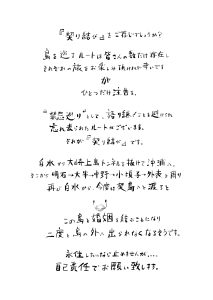 『契り結び』をご存じでしょうか？
島を巡るルートは皆さんの数だけ存在し
それぞれの旅をお楽しみ頂ければ幸いです
が
ひとつだけ注意を。
"禁忌巡り"として、語り継ぐことも避けられ
忘れ去られたルートがございます。
それが『契り結び』です。
白水から大崎上島トンネルを抜けて沖浦へ、
そこから明石→大串→中野→小頃子→外表と周り
再び白水から、今度は契島へと渡ると
この島と婚姻を結ぶことになり
二度と島の外へ出られなくなるそうです。
永住したいなら止めませんが、...
自己責任でお願い致します。